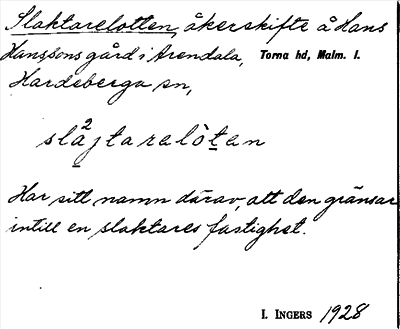 Slaktarelotten, åkerskifte å Hans
Hanssons gård i Arendala, Torna hd, Malm. l.
Hardeberga sn,
sla²jtarelòtan
Har sitt namn därav, att den gränsar
intill en slaktares fastighet.
I. INGERS 1928